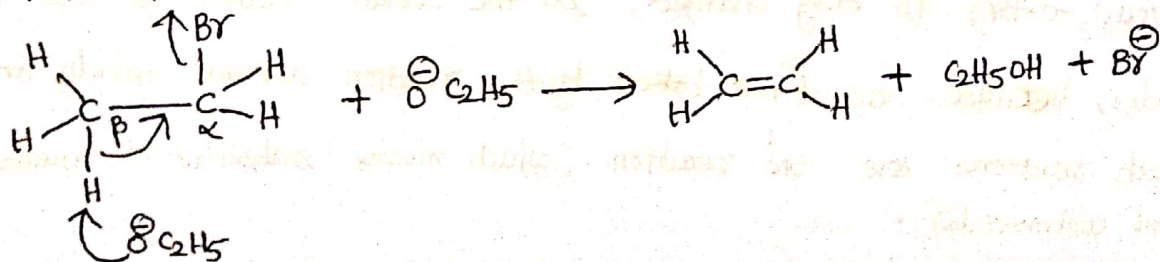 Br
H H
C — C H
H β α
H
⊖O C2H5
+ ⊖O C2H5 ⟶
H H
C=C
H H
+ C2H5OH + Br⊖